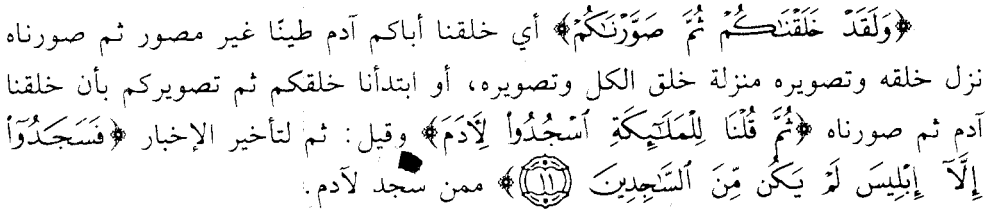 ﴿وَلَقَدْ خَلَقْنَٰكُمْ ثُمَّ صَوَّرْنَٰكُمْ﴾ أي خلقنا أباكم آدم طينًا غير مصور ثم صورناه
نزل خلقه وتصويره منزلة خلق الكل وتصويره، أو ابتدأنا خلقكم ثم تصويركم بأن خلقنا
آدم ثم صورناه ﴿ثُمَّ قُلْنَا لِلْمَلَٰٓئِكَةِ ٱسْجُدُوا۟ لِأَدَمَ﴾ وقيل: ثم لتأخير الإخبار ﴿فَسَجَدُوٓا۟
إِلَّآ إِبْلِيسَ لَمْ يَكُن مِّنَ ٱلسَّٰجِدِينَ ١١﴾ ممن سجد لآدم.